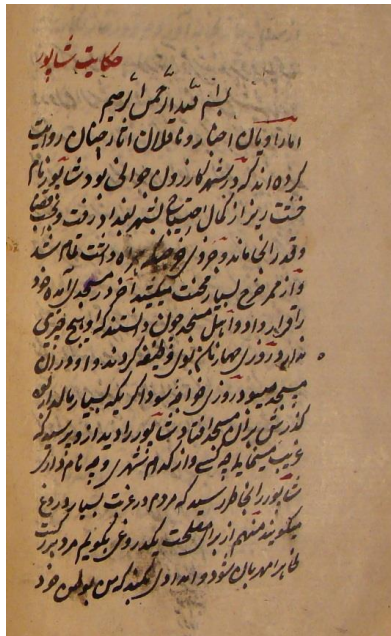 حکایت شاپور
بسم الله الرحمن الرحیم
اما راویان اخبار و ناقلان آثار چنان روایت
کرده اند که در شهر کازرون جوانی بود شاپور نام
خشت ریز از کمال احتیاج بشهر بغداد رفت
و قدر انجا ماند و خرد همراه داشت تمام شد
و از ممر خرج بسیار محنت میکشید آخر در مسجدی آمده خود
را قرار داد و اهل مسجد چون دانستند که او هیچ چیزی
ندارد روزی چهار نان بوی وظیفه کردند و او در آن
مسجد میبود روزی خواجه سوداگر یکه بسیار مالدار بود
گذرش بران مسجد افتاد شاپور را دید از وی پرسید که
غریب مینمایی چه کسی و از کدام شهری و چه نام داری
شاپور را بخاطر رسید که مردم در غربت بسیار دروغ
میگویند منهم از برای مصلحت یک دروغ بگویم مرد بزرگ
بخاطر مهربان شود و امدادی کند که من بوطن خود